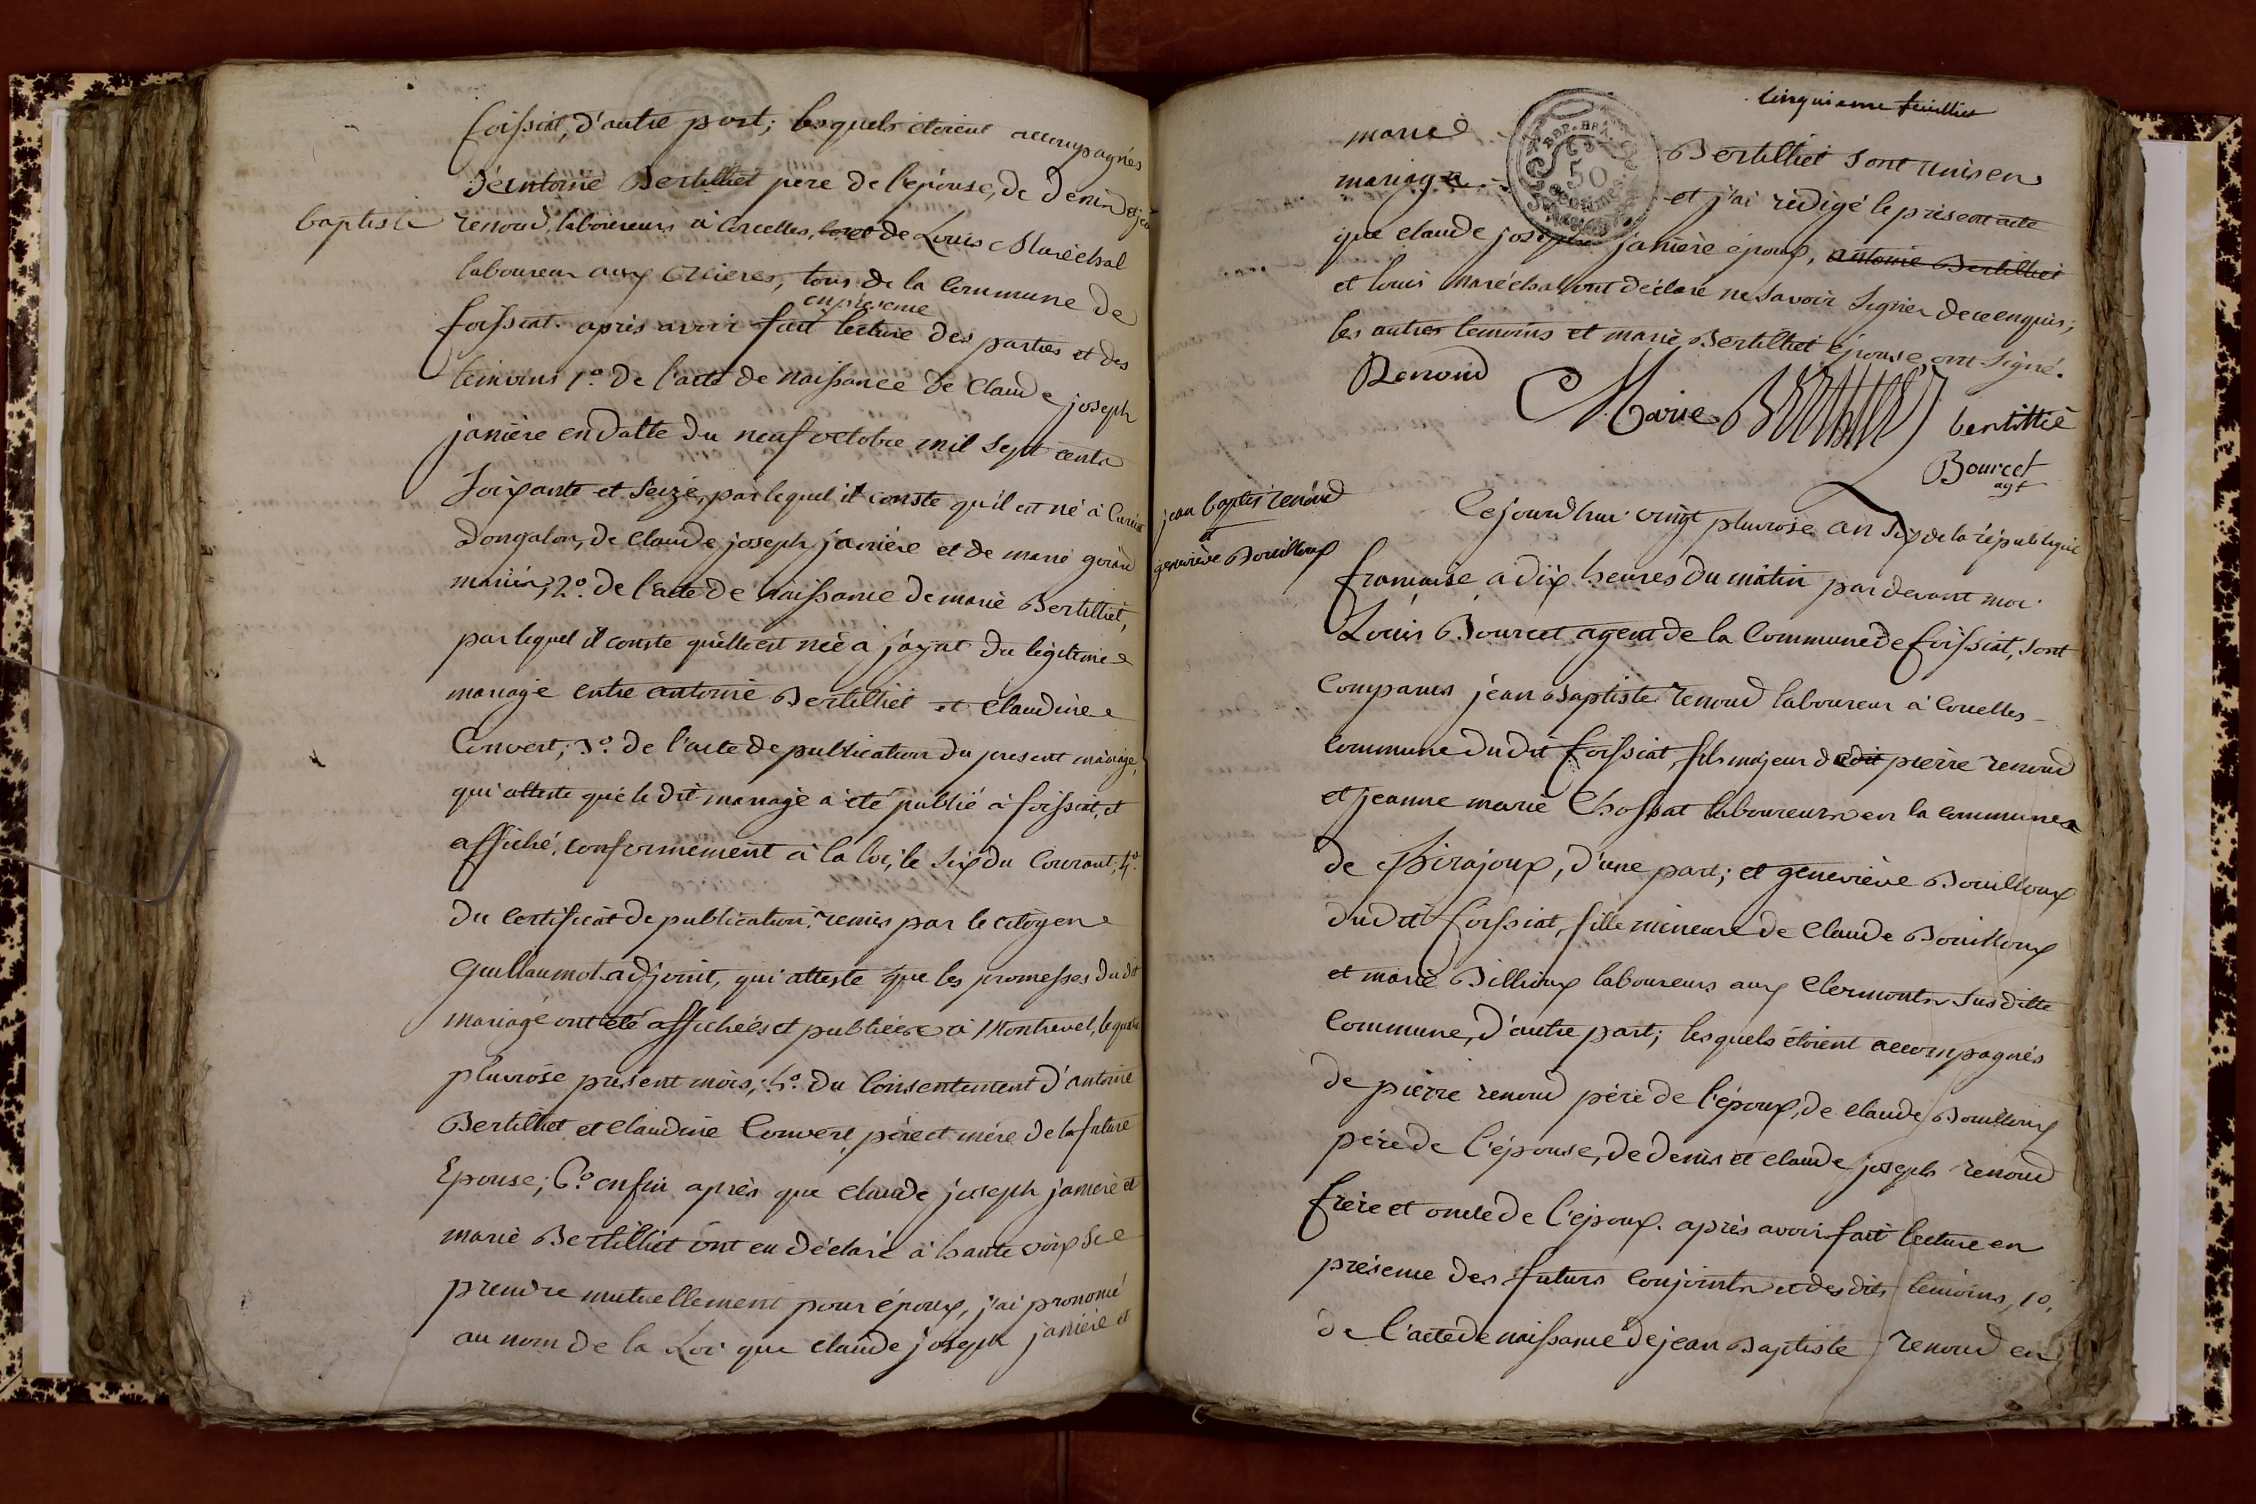 foissiat, d'autre part; lesquels étoient accompagnés
d'antoine Bertilliet pere de l'epouse, de denis et jean
baptiste renoud, laboureurs à Corcelles, de Louis Maréchal
laboureur aux , tous de la Commune de
foissiat. après avoir fait lecture en présence des parties et des
temoins 1º. de l'acte de naissance de Claude joseph
janiere en datte du neuf octobre mil sept cents
soixante et seize, par lequel il conste qu'il est né à Curciat
dongalon, de Claude joseph janiere et de marie
2º. de l'acte de naissance de marie Bertilliet,
par lequel il conste quelle est née à jayat du légitime
mariage entre antoine Bertilliet et Claudine
Convert; 3º. de l'acte de publication du present mariage,
qui atteste que le dit mariage a été publié à foissiat, et
affiché, conformement à la loi, le six du Courant; 4º.
du certificat de publication remis par le citoyen
Guillaumot adjoint, qui atteste que les promesses du dit
mariage ont été affichées et publiées à Montrevel, le quatre
pluviose present mois; 5º. du consentement d'antoine
Bertilliet et Claudine Convert, père et mère de la future
Epouse; 6º. enfin après que claude joseph janiere et
marie Bertilliet ont eu déclaré à haute voix se
prendre mutuellement pour époux, j'ai prononcé
au nom de la Loi que claude joseph janiere et
cinquieme feuillet
REP. FRA.
50
CENTIMES
marie Bertilliet sont unis en
mariage et j'ai rédigé le présent acte
que claude joseph janiere époux, antoine Bertilliet
et louis maréchal ont déclaré ne savoir signer de ce enquis;
les autres temoins et marie Bertilliet épouse ont signé.
Renoud Marie bertillié
Bourcet
agt
jean baptis renoud
et
genevieve Bouilloux
Cejourd'hui vingt pluviose an six de la république
française à dix heures du matin par devant moi
Louis Bourcet agent de la Commune de foissiat, sont
comparus jean Baptiste renoud laboureur à Corcelles
commune du dit foissiat, fils majeur de dit pierre renoud
et jeanne marie Chossat laboureurs en la commune
de Pirajoux, d'une part; et genevieve Bouilloux
dudit foissiat, fille mineure de Claude Bouilloux
et marie Billioux laboureurs aux Clermonts susditte
commune, d'autre part; lesquels étoient accompagnés
de pierre renoud père de l'époux, de claude Bouilloux
père de l'épouse, de denis et claude joseph renoud
frère et oncle de l'époux. après avoir fait lecture en
présence des futurs conjoints et des dits temoins, 1º.
de l'acte de naissance de jean Baptiste renoud en